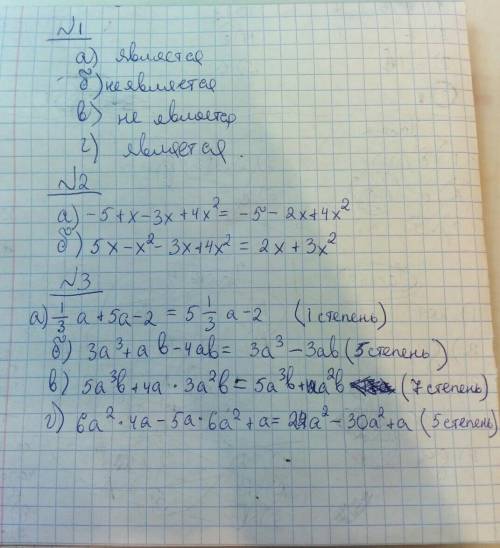 №1
а) является
б) не является
в) не является
г) является.
№2
а) -5+x-3x+4x²= -5-2x+4x²
б) 5x-x²-3x+4x²=2x+3x²
№3
а) 1/3 a+5a-2=5 1/3 a-2 (1 степень)
б) 3a³+ab-4ab= 3a³-3ab (5 степень)
в) 5a³b+4a·3a²b=5a³b+ a²b (7 степень)
г) 6a²·4a-5a·6a²+a= a²-30a²+a (5 степень)